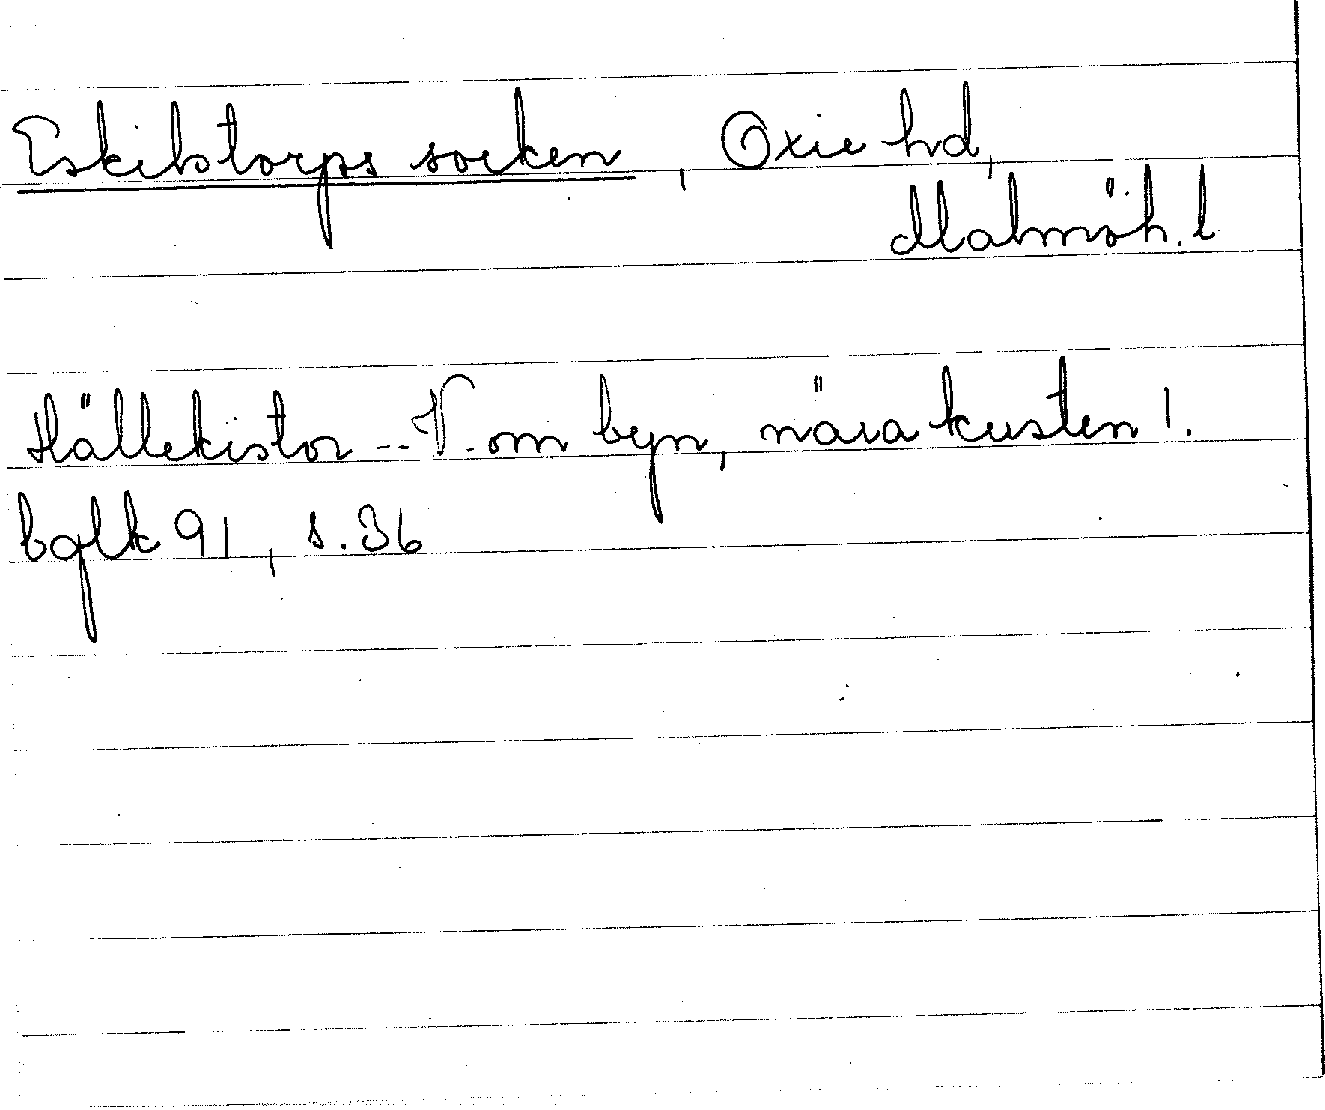 Eskilstorps socken, Oxie hd,
Malmöh. l
Hällekistor -- V. om byn, nära kusten!.
bqlk 91, s. 36